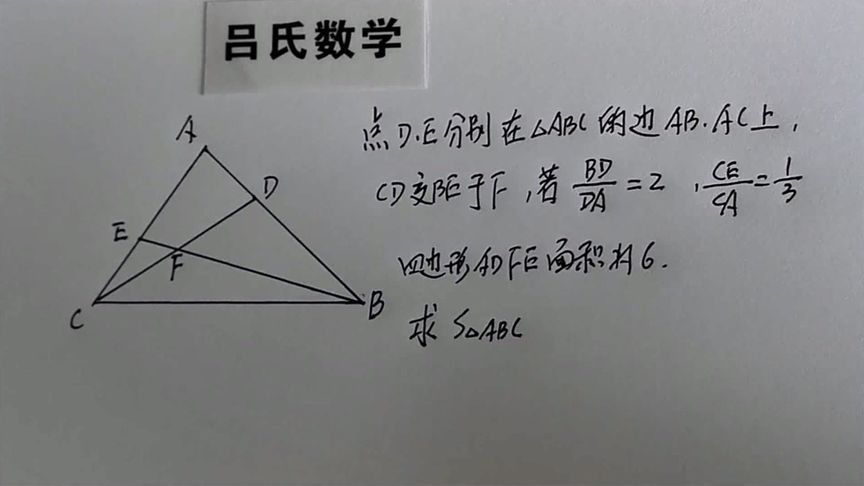 吕氏数学
点D.E分别在△ABC的边AB.AC上,
CD交BE于F,若 BD/DA=2 , CE/CA=1/3
四边形ADFE面积为6.
求 S△ABC
A
D
E
F
C
B